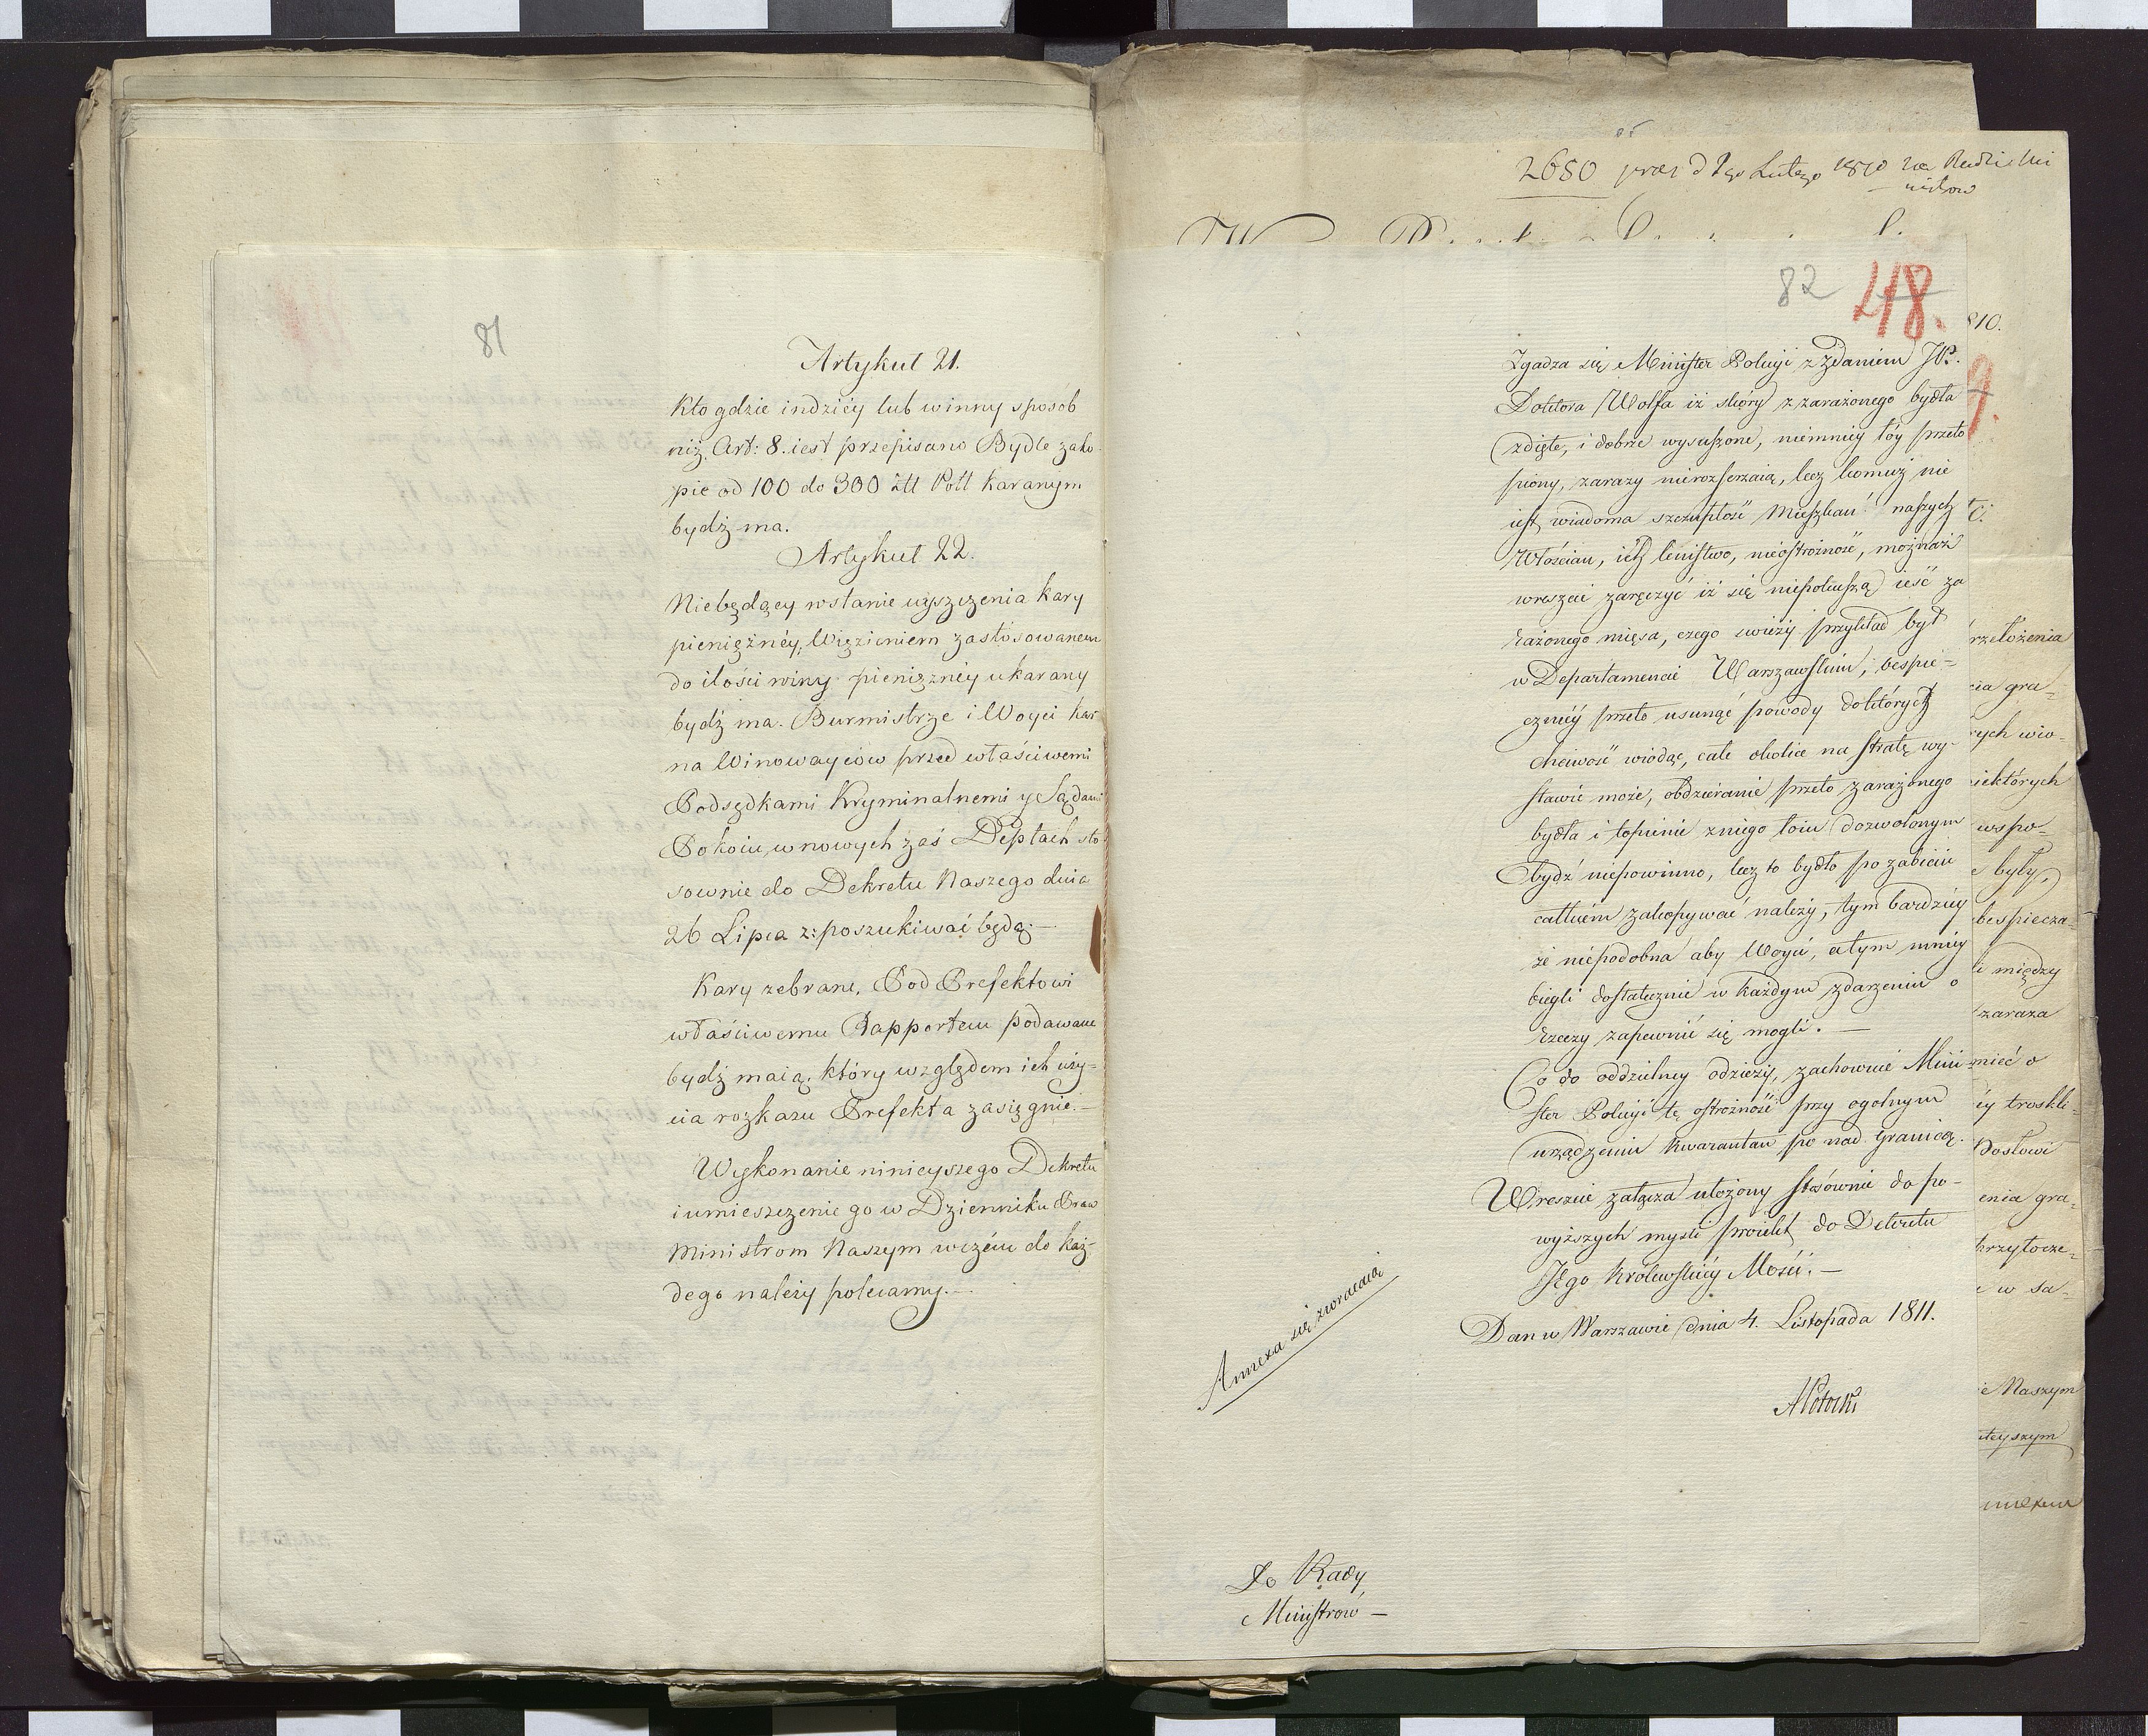 81
Artykuł 21.
Kto gdzie indziéy lub winny sposób
niż Art: 8. iest przepisano Bydle zako-
pie od 100 do 300 złł Poll karanym
bydź ma.
Artykuł 22.
Niebędący wstanie uyszczenia kary
pieniężnéy, Więzieniem zastosowanem
do ilości winy pieniężnéy ukarany
bydź ma. Burmistrze i Woyci kar
na Winowayców przed właściwemi
Podsędkami Kryminalnemi y Sądami
Pokoiu, w nowych zaś Deptach sto
sownie do Dekretu Naszego dnia
26 Lipca z: poszukiwać będą.—
Kary zebrane, Pod Prefektowi
właściwemu Rapportem podawane
bydź maią, który względem ich uży-
cia rozkazu Prefekta zasięgnie.—
Wykonanie ninieyszego Dekretu
i umieszczenie go w Dzienniku Praw
Ministrom Naszym w czém do każ-
dego należy polecamy.—
2650 prae d Lutego 1810 na Radzie Mi
nistrow
82 48.
810.
Zgadza się Minister Policyi z Zdaniem JP.
Doktora Wolffa iż skóry z zarażonego bydła
zdięte, i dobrze wysuszone, niemniéy łóy przeto
piony, zarazy nierozszerzaią, lecz komuż nie
iest wiadoma szczupłość Mieszkań naszych
Włościan, ich lenistwo, nieostrożność, możnaż
wreszcie zaręczyć iż się niepokuszą ieść za
rażonego mięsa, czego świeży przykład był
w Departamencie Warszawskim, bespie=
czniéy przeto usunąć powody do których
chciwość wiodąc, całe okolice na stratę wy-
stawić może, obdzieranie przeto zarażonego
bydła i topienie zniego łoiu dozwolonym
bydź niepowinno, lecz to bydło po zabiciu
całkiém zakopywać należy, tym bardziéy
że niepodobna aby Woyci, a tym mniéy
biegli dostatecznie w każdym zdarzeniu o
rzeczy zapewnić się mogli.—
Co do oddzielney odzieży, zachownie Mini
ster Policyi tę ostrożność przy ogolnym
urządzeniu Kwarantan po nad Granicą.
Wreszcie załącza ułożony stósównie do po-
wyższych myśli proiekt do Dekretu
JEgo Królewskiéy Mości.—
Dan w Warszawie dnia 4. Listopada 1811.
APotocki
Annexa się zwracaią
Do Rady
Ministrów —
rzełożenia
cia gra=
rych wio=
iektórych
wspo=
były,
bespiecza=
i między
zaraza
mieć o
éy troskli=
Posłowi
enia gra=
przytocze=
w sa=
Naszym
teyszym